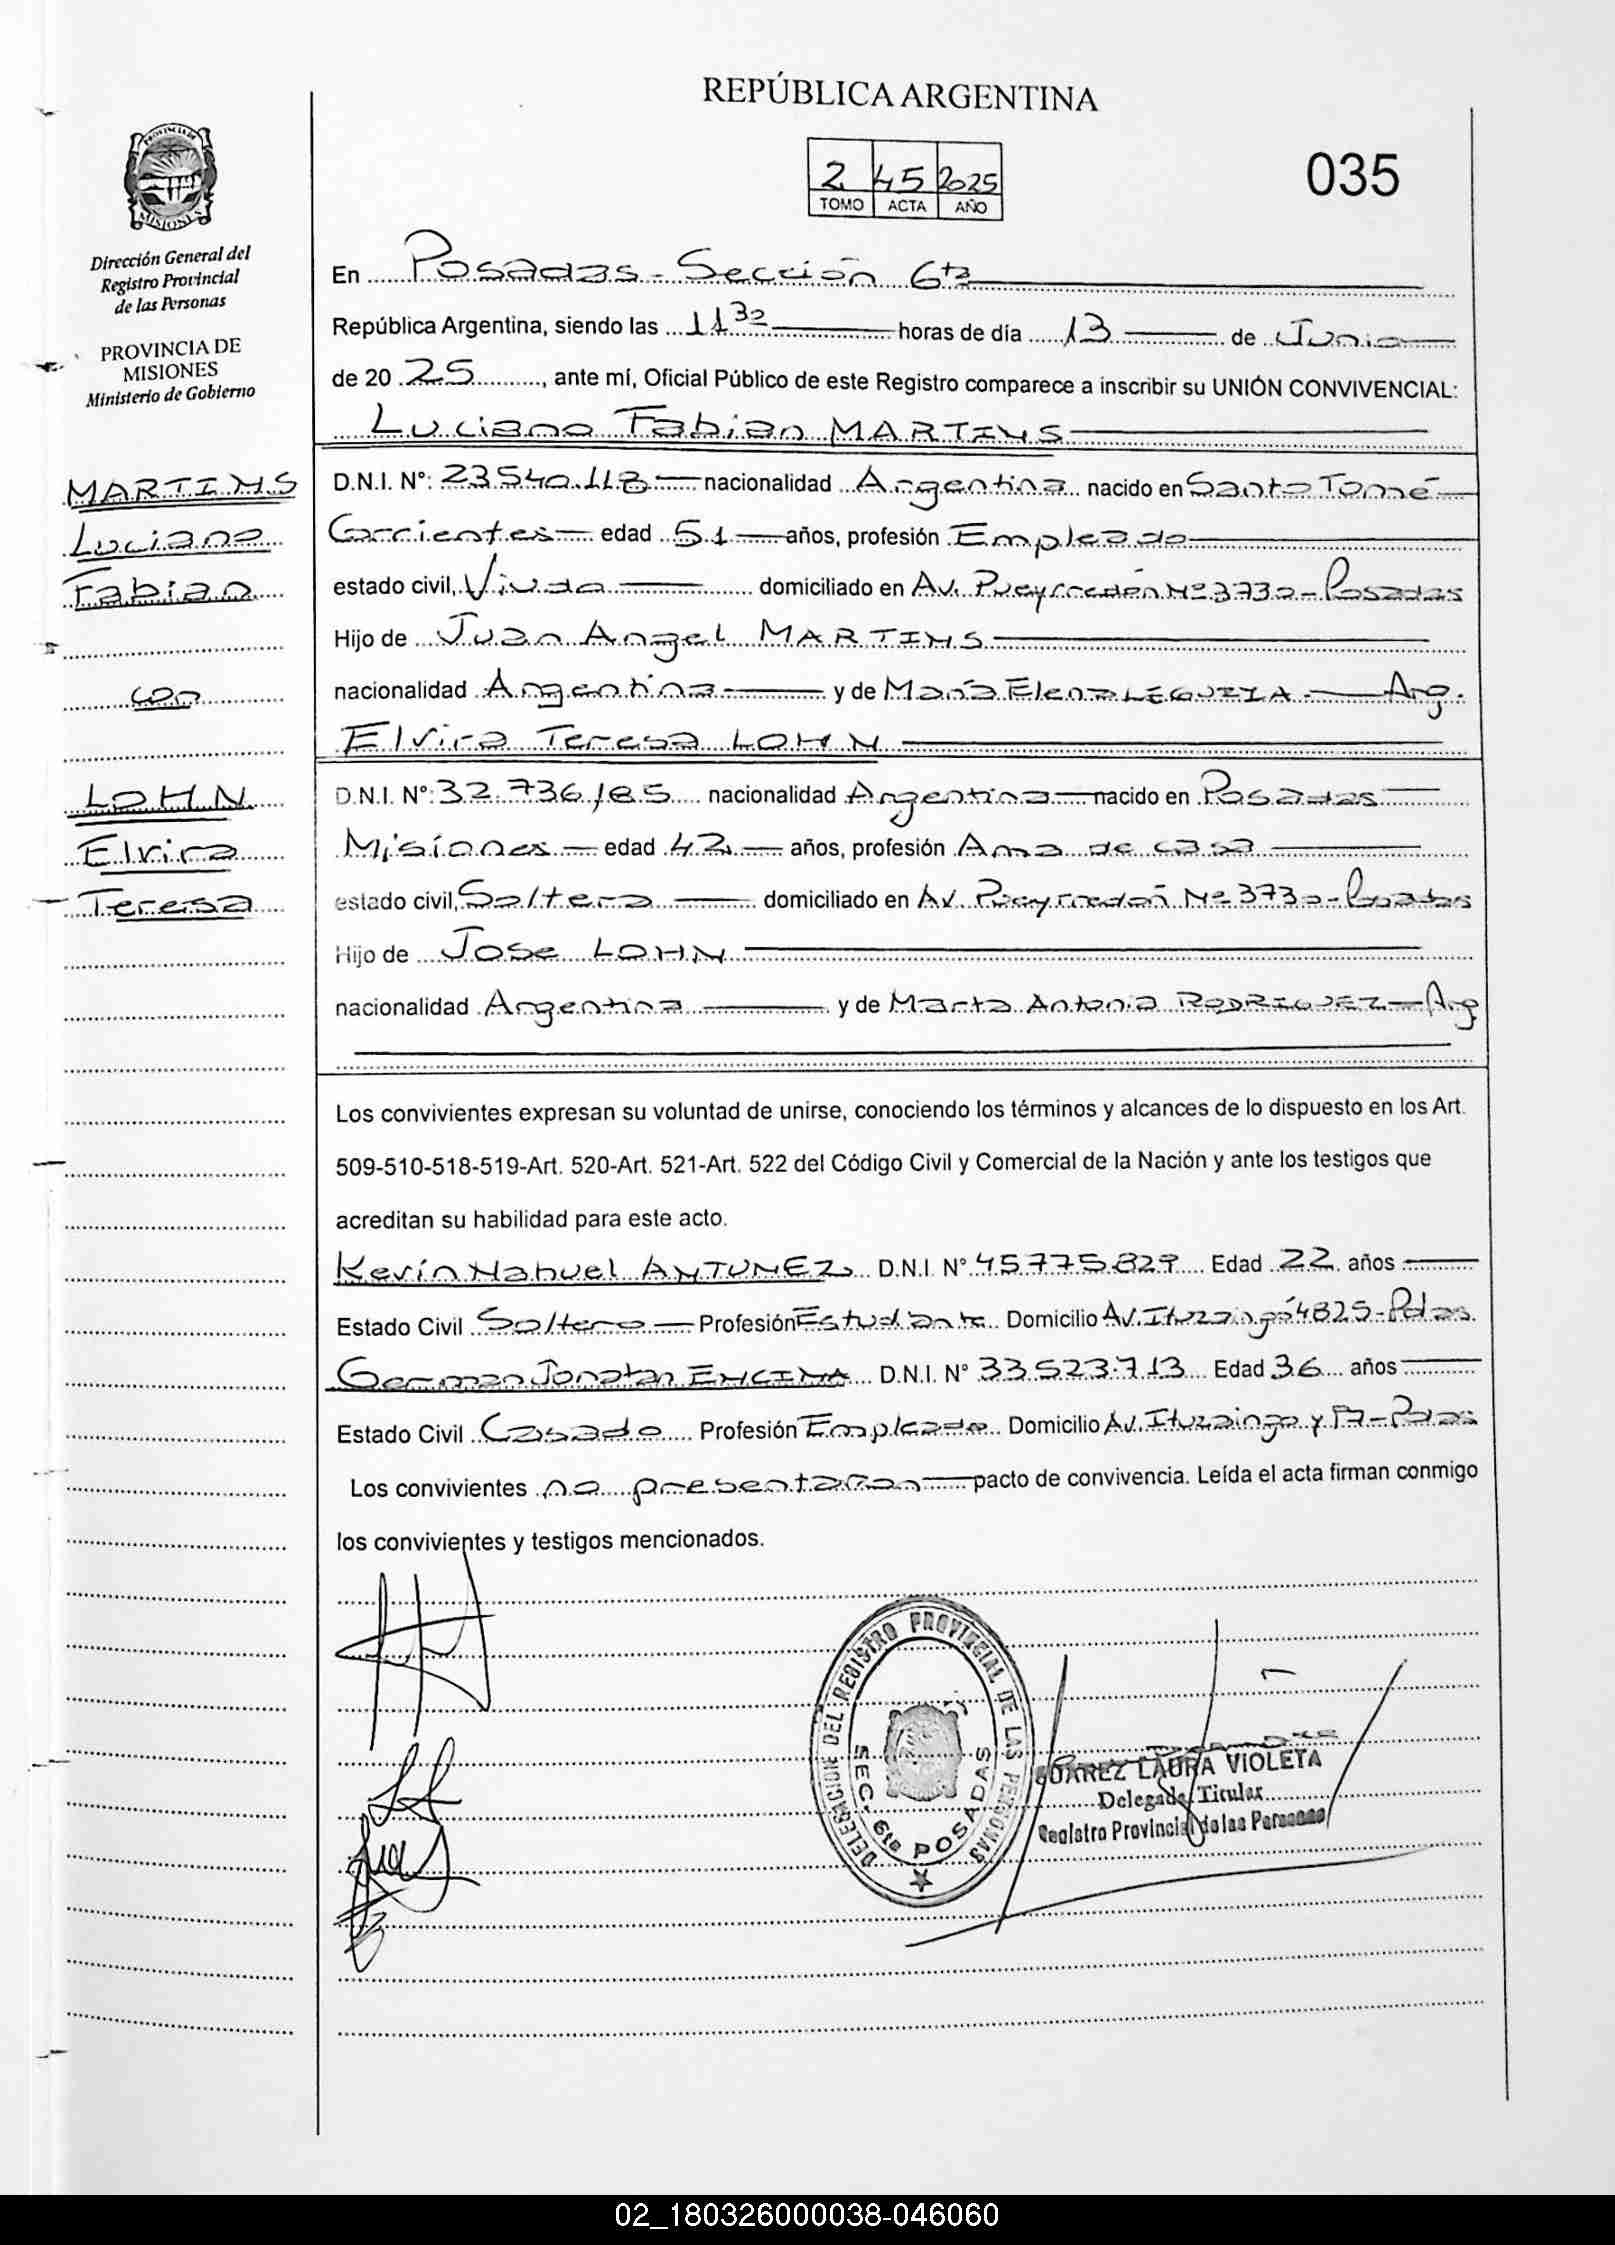 REPÚBLICA ARGENTINA
2 45 2025
TOMO ACTA AÑO
035
PROVINCIA DE
MISIONES
Dirección General del
Registro Provincial
de las Personas
PROVINCIA DE
MISIONES
Ministerio de Gobierno
MARTINS
Luciano
Fabian
con
LOHN
Elvira
Teresa
En Posadas - Sección 6ta
República Argentina, siendo las 11 30 horas de día 13 de Junio
de 2025, ante mí, Oficial Público de este Registro comparece a inscribir su UNIÓN CONVIVENCIAL:
Luciano Fabian MARTINS
D.N.I. Nº: 23.540.118 nacionalidad Argentina nacido en Santo Tomé
Corrientes edad 51 años, profesión Empleado
estado civil, Viudo domiciliado en Av. Pueyrredón Nº 3730 - Posadas
Hijo de Juan Angel MARTINS
nacionalidad Argentina y de María Elena Arg.
Elvira Teresa LOHN
D.N.I. Nº: 32.736.185 nacionalidad Argentina nacido en Posadas
Misiones edad 42 años, profesión Ama de casa
estado civil, Soltera domiciliado en Av. Pueyrredón Nº 3730 - Posadas
Hijo de Jose LOHN
nacionalidad Argentina y de Marta Antonia RODRIGUEZ - Arg
Los convivientes expresan su voluntad de unirse, conociendo los términos y alcances de lo dispuesto en los Art.
509-510-518-519-Art. 520-Art. 521-Art. 522 del Código Civil y Comercial de la Nación y ante los testigos que
acreditan su habilidad para este acto.
Kevin Nahuel ANTUNEZ D.N.I. Nº 45.775.827 Edad 22 años
Estado Civil Soltero Profesión Estudiante Domicilio Av. Ituzaingó 4825 - Pdas.
German Jonatan ENCINA D.N.I. Nº 33.523.713 Edad 36 años
Estado Civil Casado Profesión Empleado Domicilio Av. Ituzaingo y - Pdas
Los convivientes no presentaron pacto de convivencia. Leída el acta firman conmigo
los convivientes y testigos mencionados.
DELEGACION DEL REGISTRO PROVINCIAL DE LAS PERSONAS
SEC. 6ta POSADAS
SUAREZ LAURA VIOLETA
Delegada Titular
Registro Provincial de las Personas
02_180326000038-046060